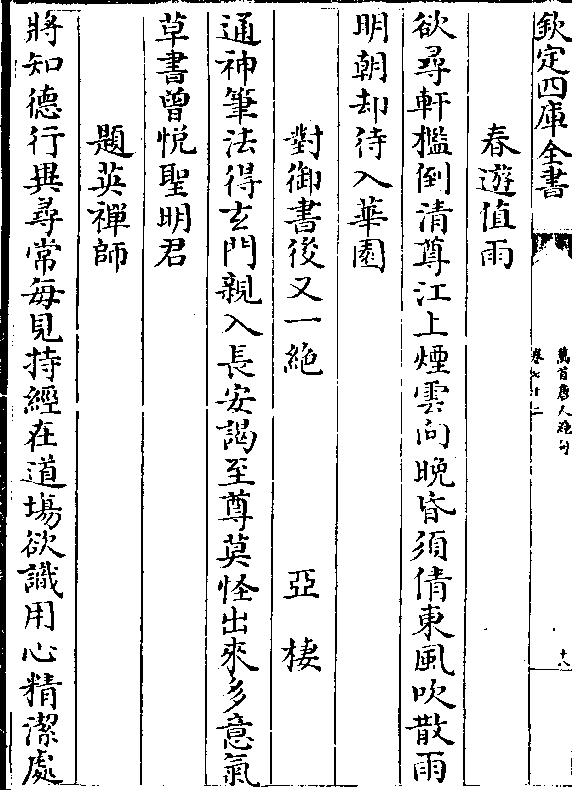 欽定四庫全書
萬首唐人絶句
卷七十二
十八
春遊值雨
欲尋軒檻倒清尊江上煙雲向晚昏須倩東風吹散雨
明朝却待入華園
對御書後又一絶　亞棲
通神筆法得玄門親入長安謁至尊莫怪出來多意氣
草書曾悅聖明君
題英禪師
將知德行異尋常每見持經在道場欲識用心精潔處